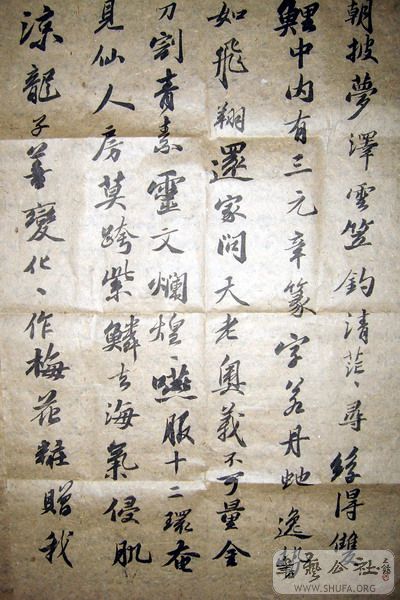 朝披夢澤雲笠釣清茫〻尋絲得雙
鯉中内有三元章篆字若丹虵逸勢
如飛翔還家問天老奧義不可量金
刀割青素靈文爛煌〻嚥服十二環奄
見仙人房莫跨紫鱗去海氣侵肌
涼龍子善變化〻作梅花粧贈我
書藝公社
WWW.SHUFA.ORG